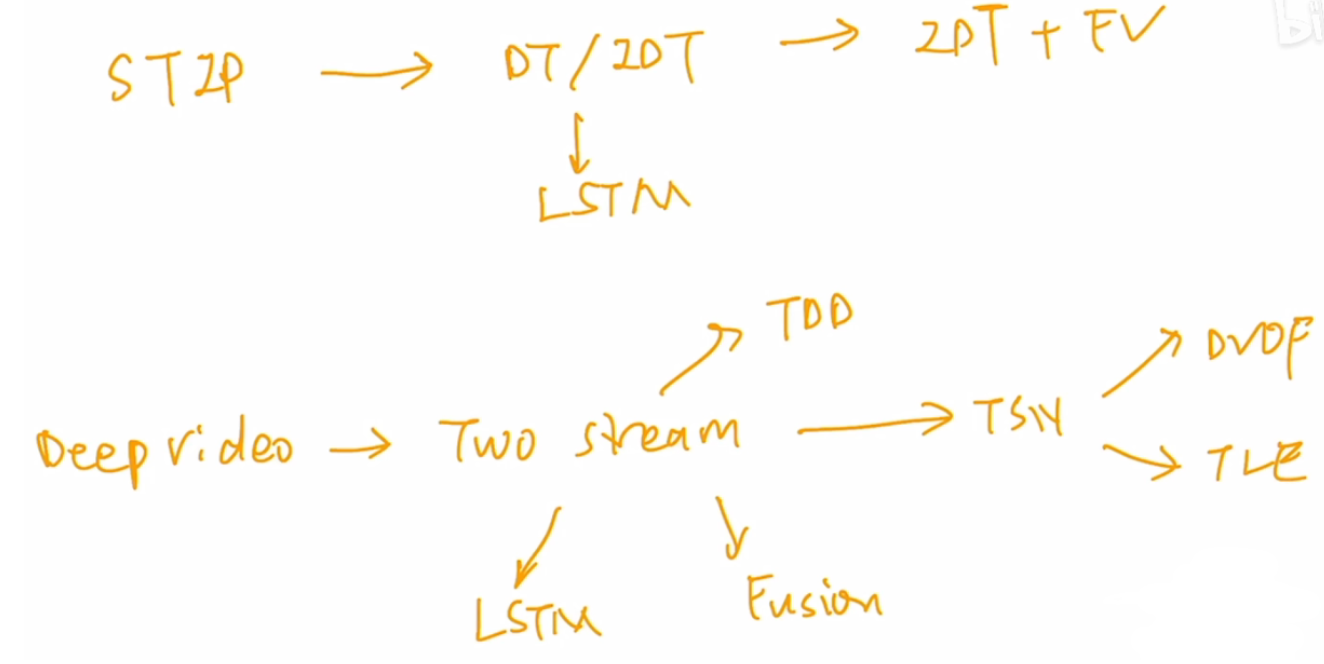 STIP → DT/IDT → IDT + FV
↓
LSTM
TDD
DVOF
Deep video → Two stream → TSN
TLE
LSTM
Fusion